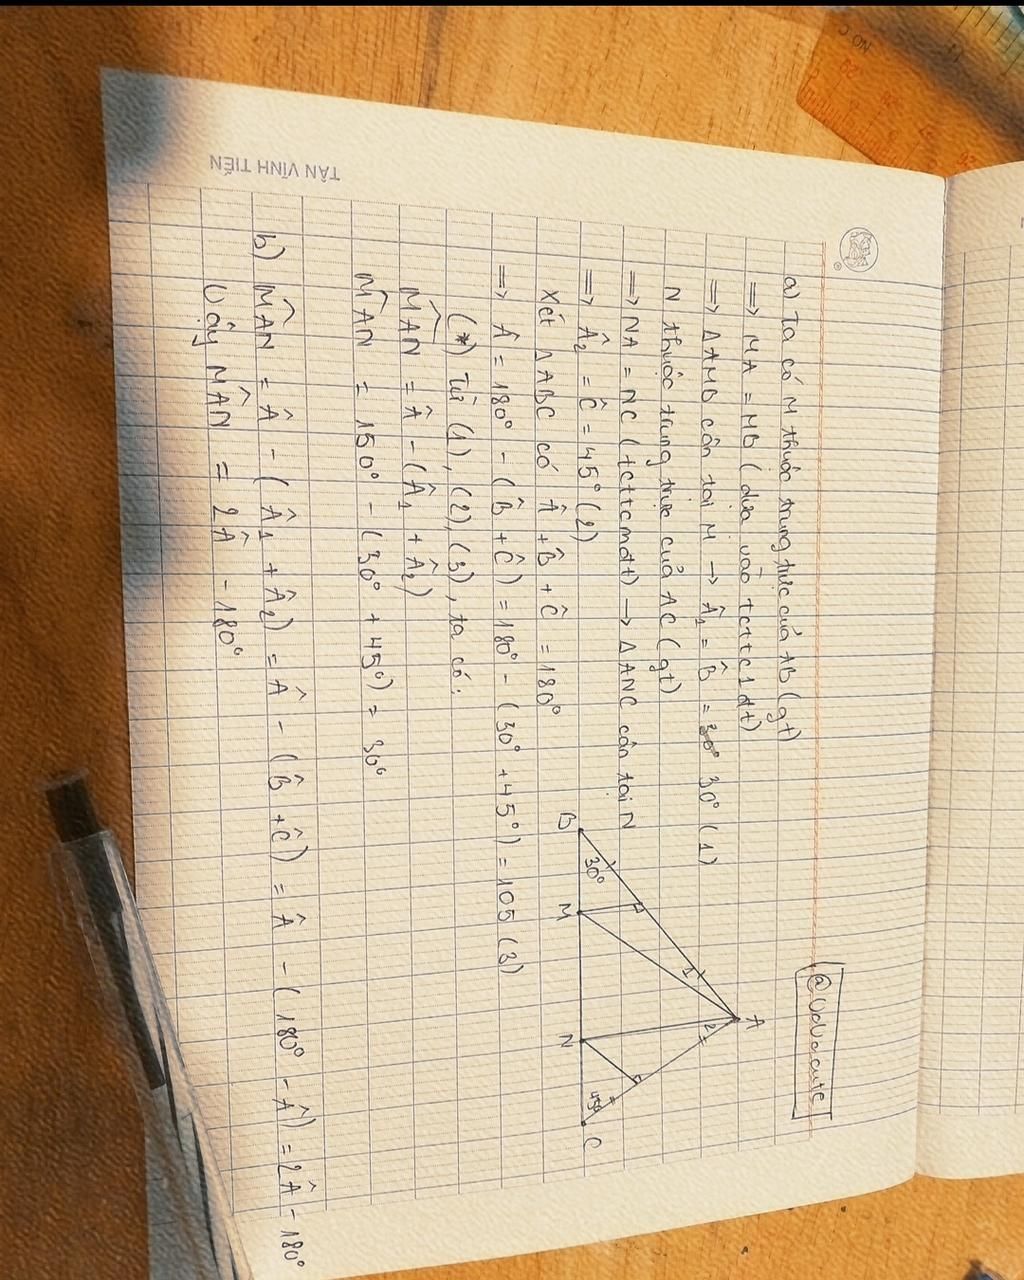 TÂN VĨNH TIẾN
@Uduacute
a) Ta có M thuộc trung trực của AB (gt)
=> MA = MB (dựa vào tcttc1đt)
=> ΔAMB cân tại M → Â1 = B̂ = 30° 30° (1)
N thuộc trung trực của AC (gt)
=> NA = NC (tcttcmđt) → ΔANC cân tại N
=> Â2 = Ĉ = 45° (2)
Xét ΔABC có Â + B̂ + Ĉ = 180°
=> Â = 180° - (B̂ + Ĉ) = 180° - (30° + 45°) = 105 (3)
(*) Từ (1), (2), (3), ta có:
MÂN = Â - (Â1 + Â2)
MÂN = 150° - (30° + 45°) = 30°
b) MÂN = Â - (Â1 + Â2) = Â - (B̂ + Ĉ) = Â - (180° - Â) = 2Â - 180°
Vậy MÂN = 2Â - 180°
A
1
2
B
30°
M
N
45°
C